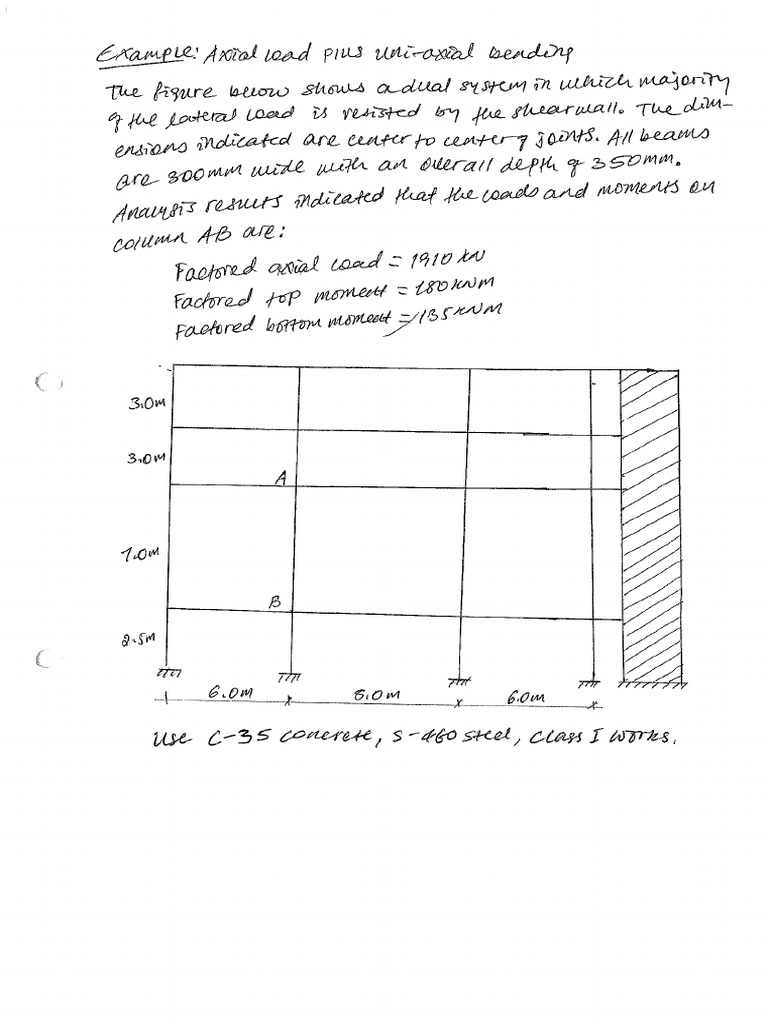 Example: Axial load plus uni-axial bending
The figure below shows a dual system in which majority
of the lateral load is resisted by the shearwall. The dim-
ensions indicated are center to center of joints. All beams
are 300mm wide with an overall depth of 350mm.
Analysis results indicated that the loads and moments on
column AB are:
Factored axial load = 1910 kN
Factored top moment = 180 kNm
Factored bottom moment = 135 kNm
3.0m
3.0m
A
7.0m
B
2.5m
6.0m 8.0m 6.0m
Use C-35 concrete, S-460 steel, Class I works.